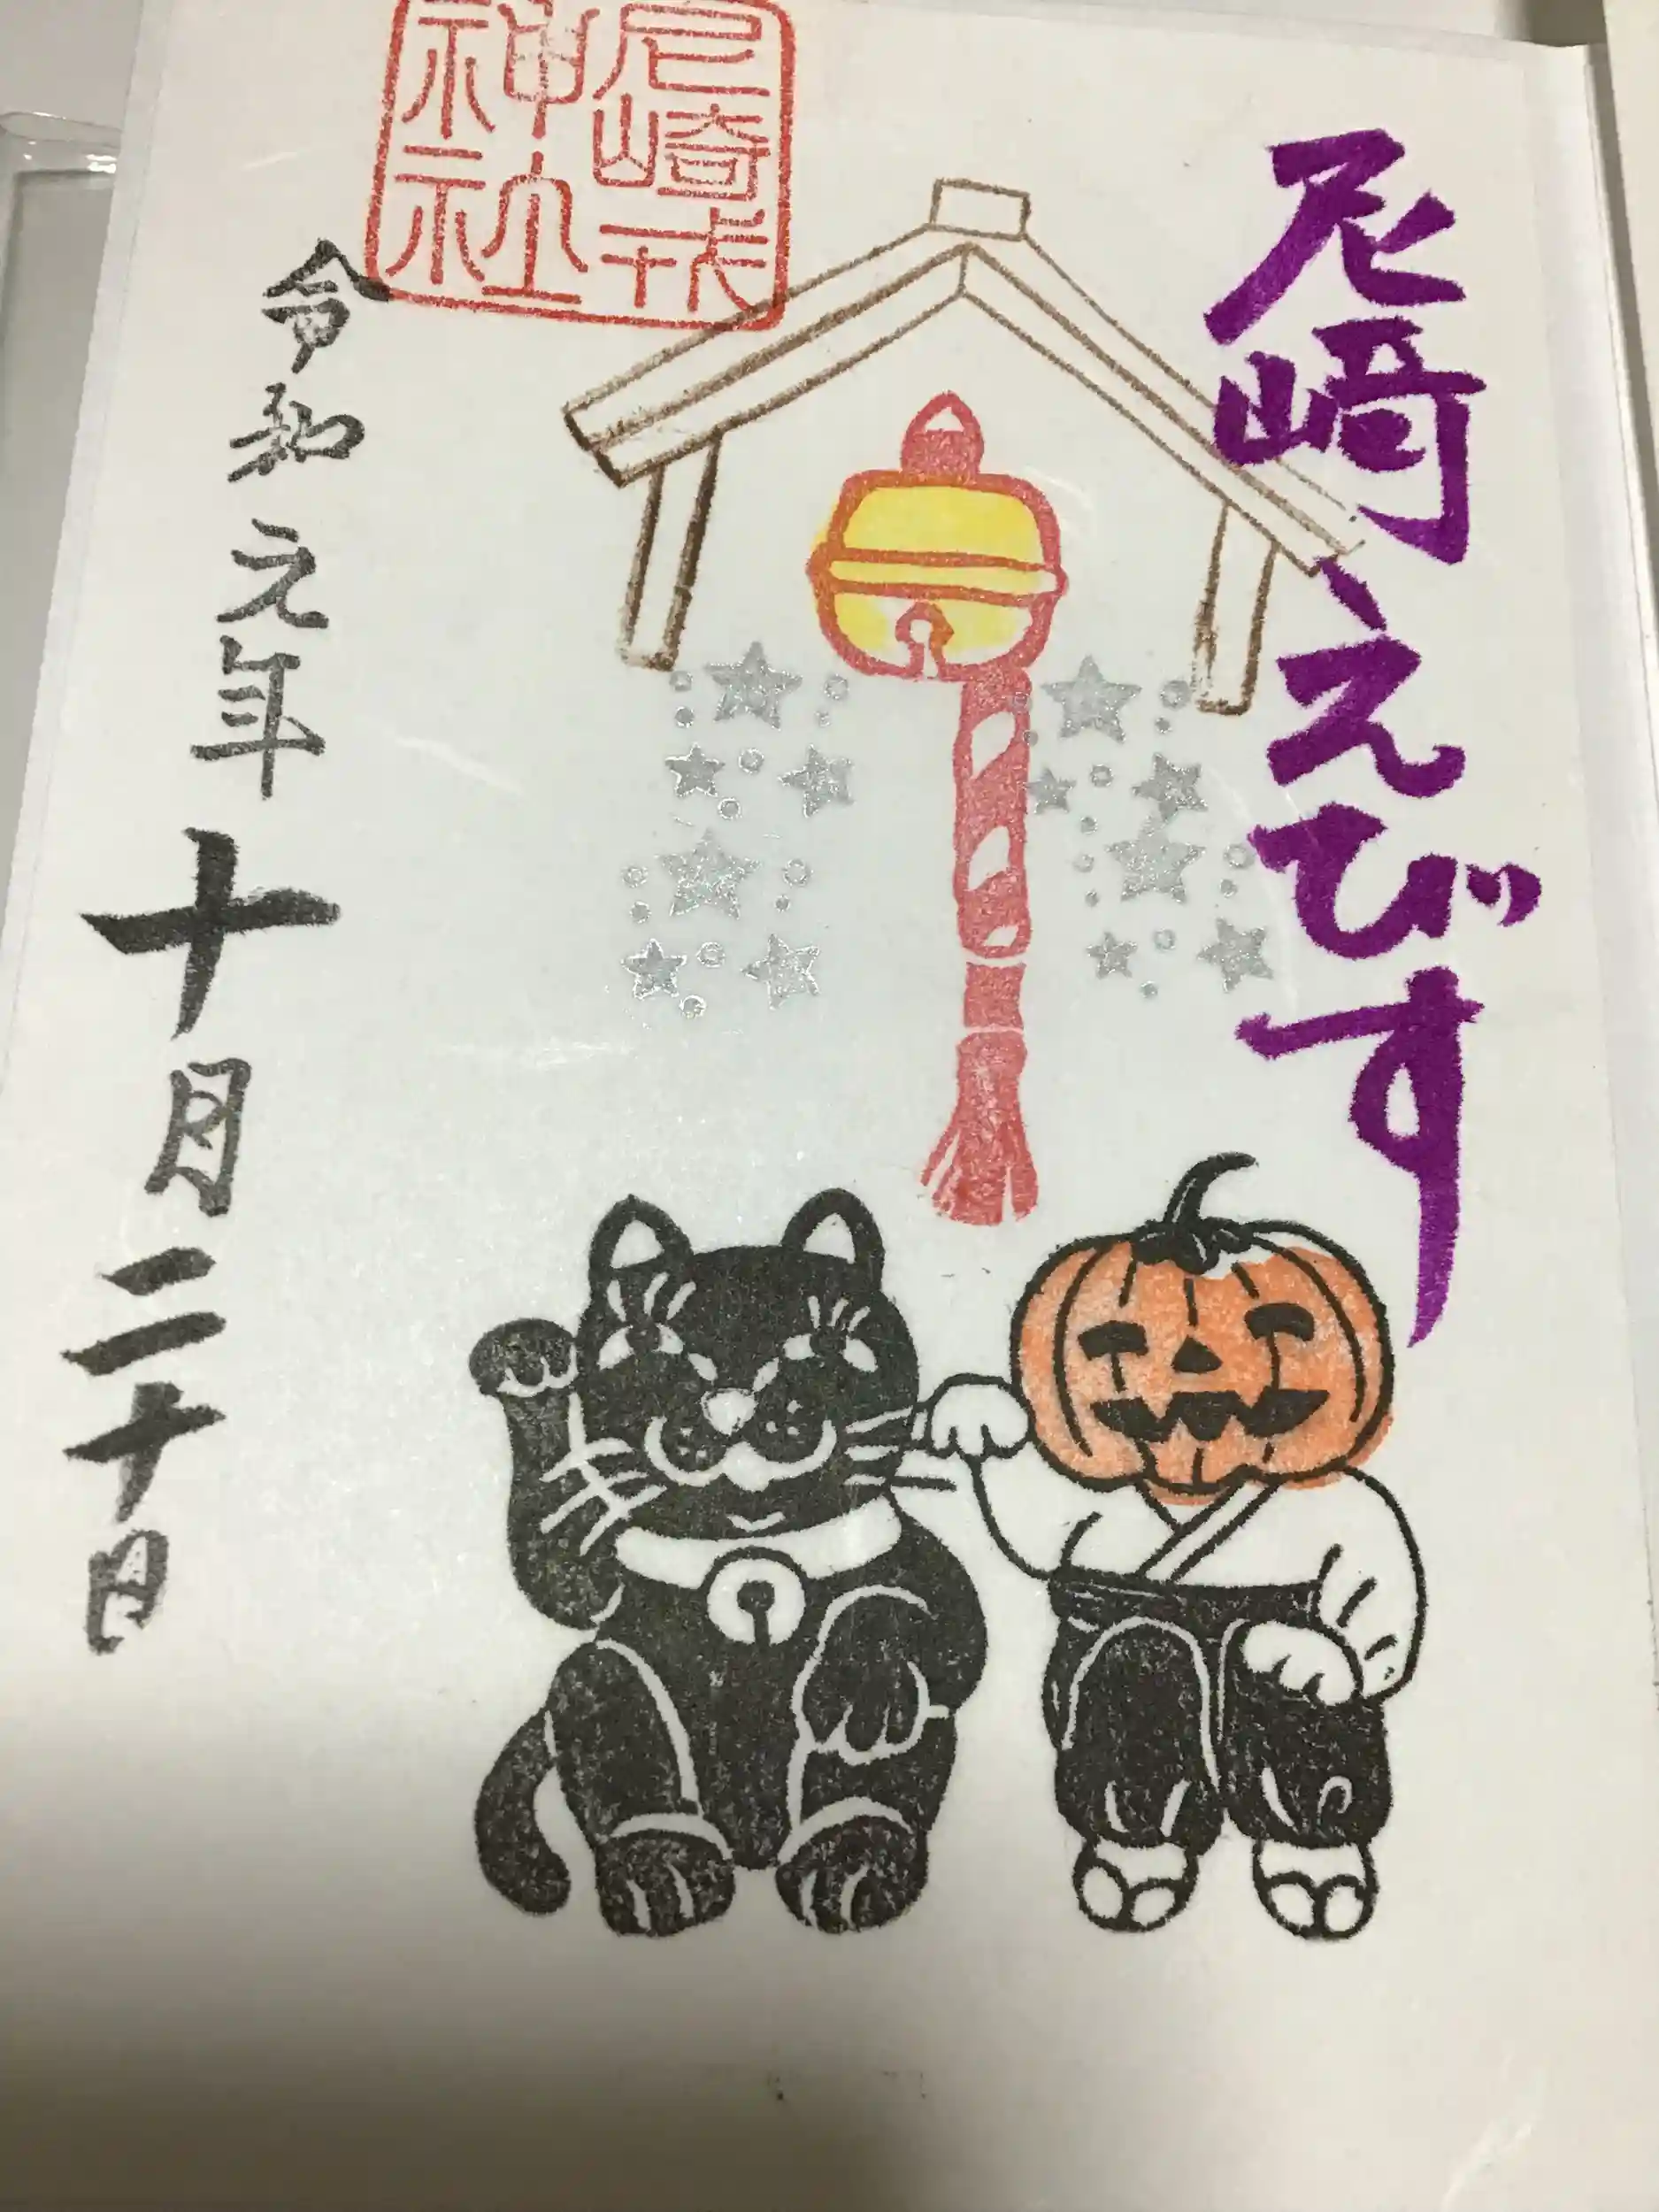 尼崎えびす
尼崎戎
神社
令和元年十月二十日